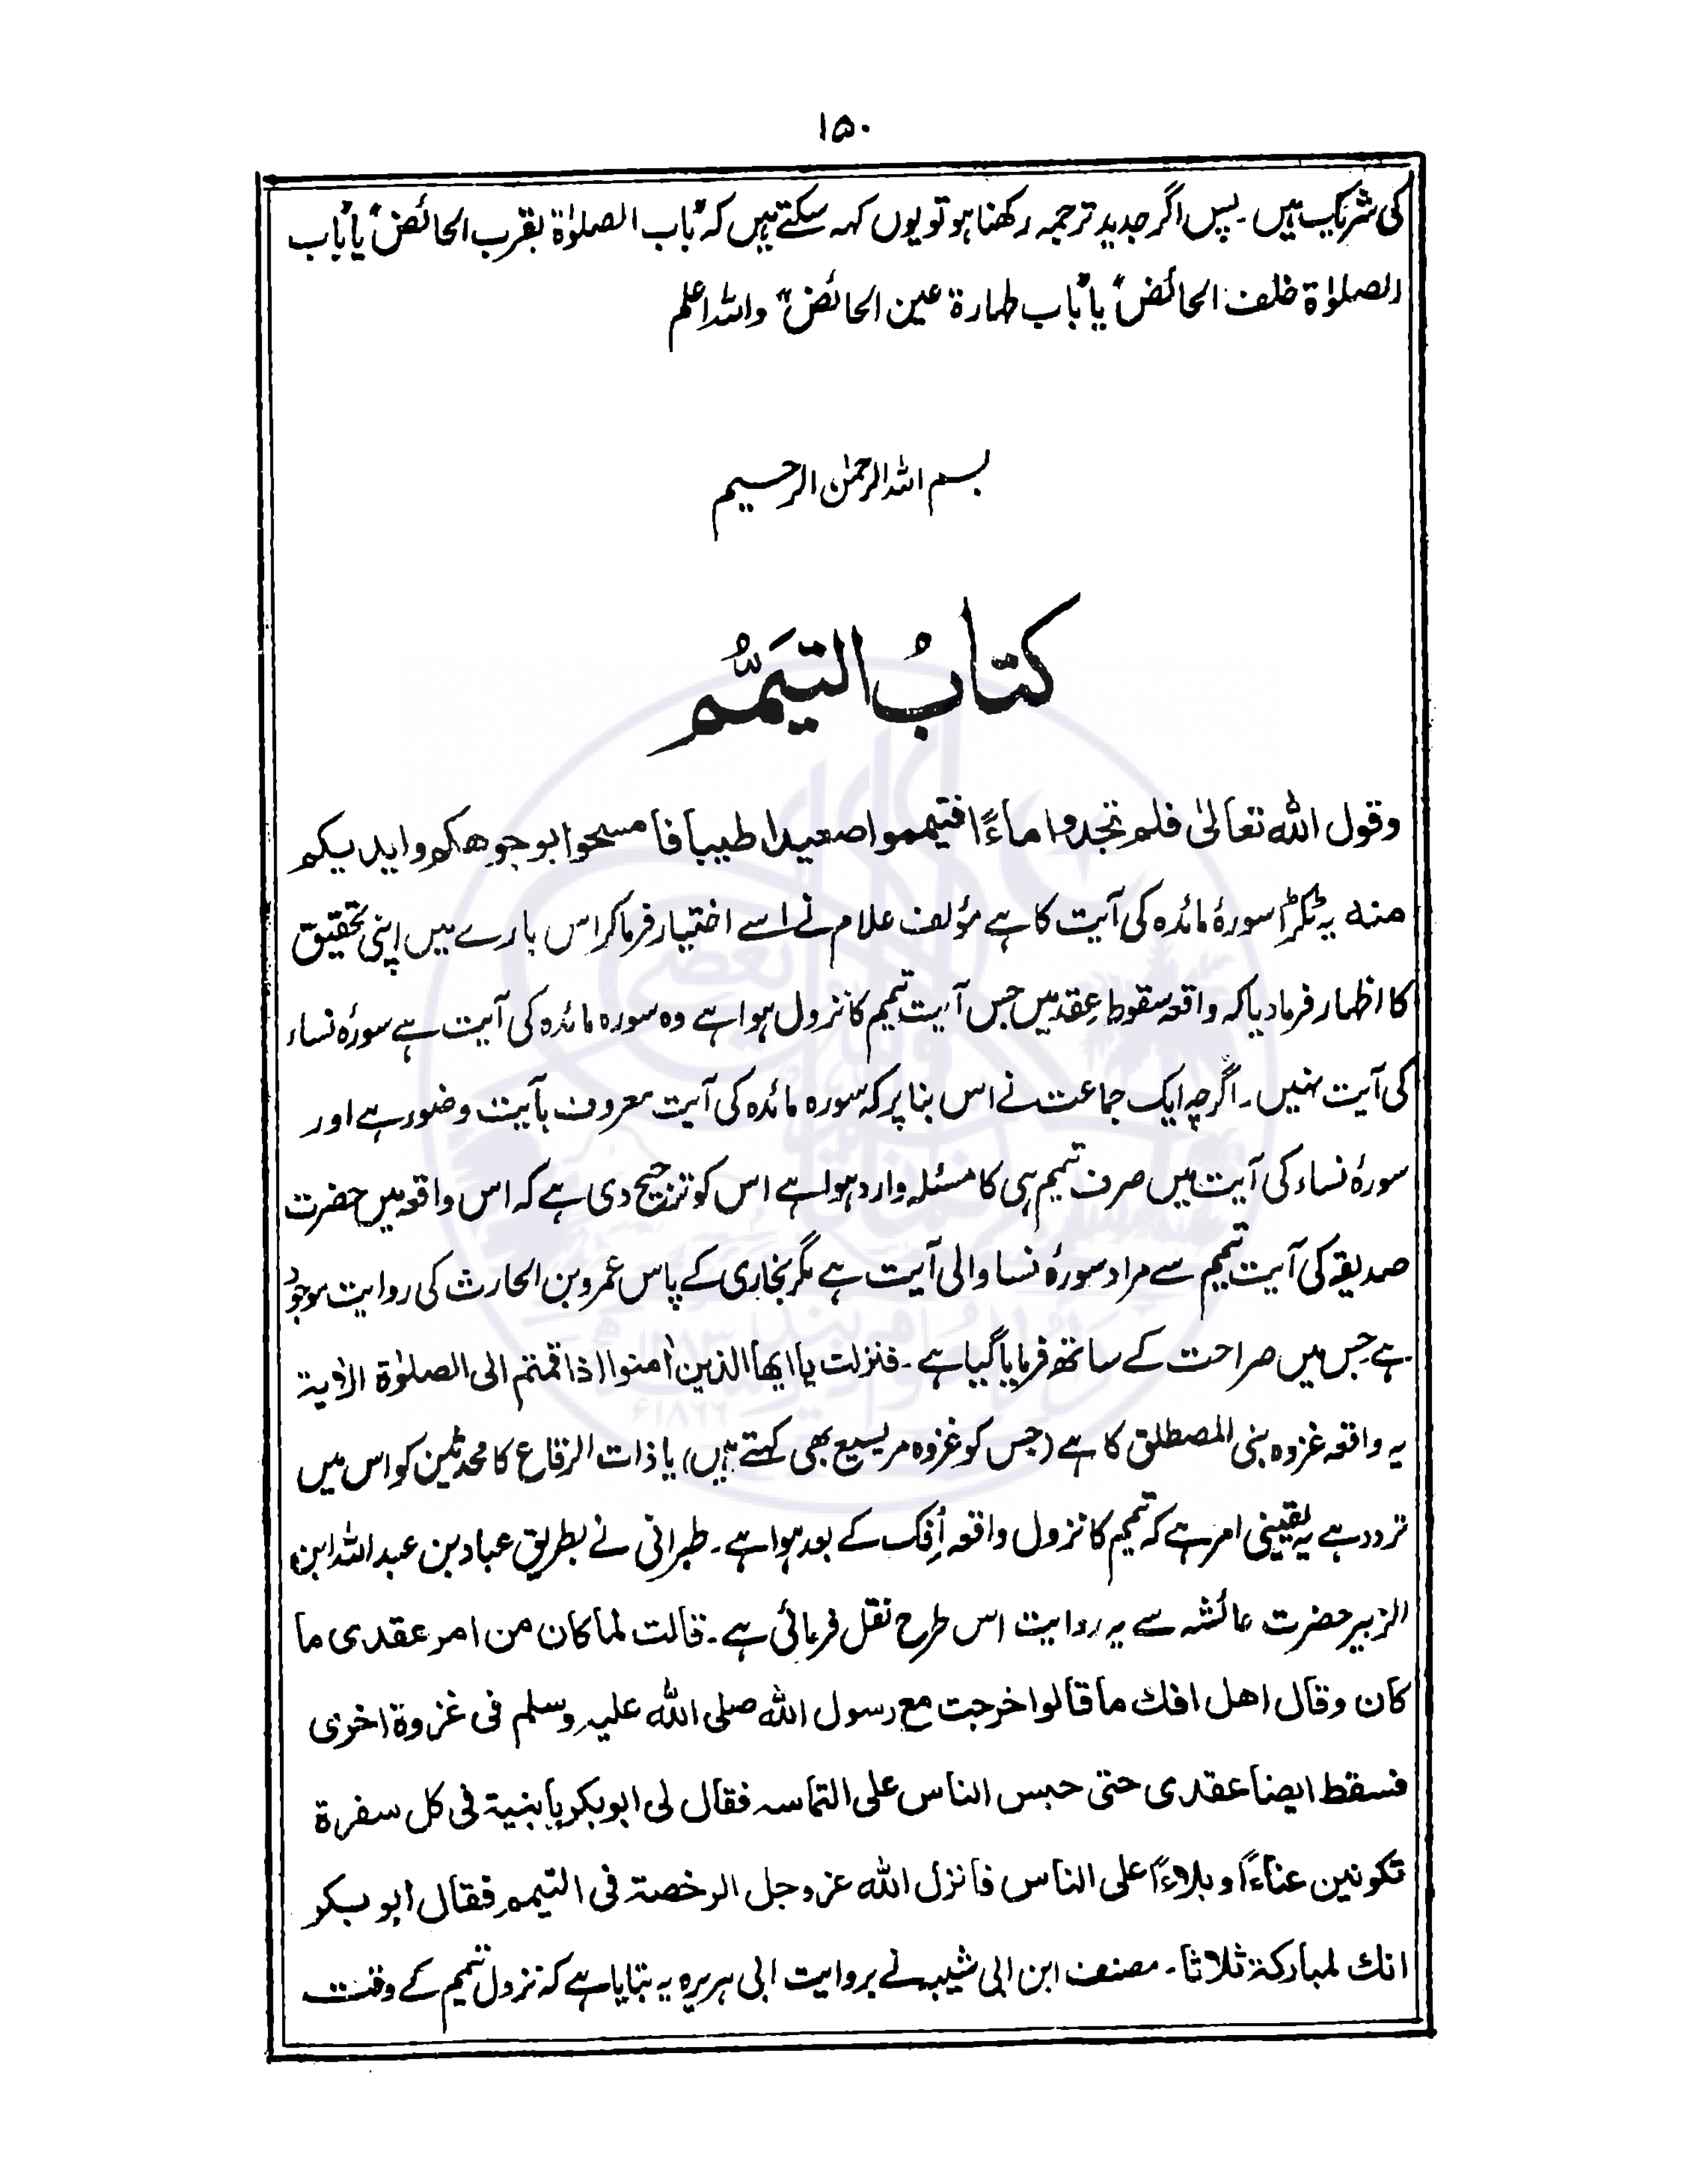 ۱۵۰
کی شریک ہیں۔ پس اگر جدید ترجمہ رکھنا ہو تو یوں کہہ سکتے ہیں کہ "باب الصلوٰۃ بقرب الحائض" یا "باب
الصلوٰۃ خلف الحائض" یا "باب طہارۃ عین الحائض" واللہ اعلم
بسم اللہ الرحمٰن الرحیم
کتابُ التیَمُّم
وقول اللہ تعالیٰ فلم تجدوا ماءً فتیمموا صعیدا طیبا فامسحوا بوجوھکم وایدیکم
منه یہ ٹکڑا سورۂ مائدہ کی آیت کا ہے مؤلف علام نے اسے اختیار فرماکر اس بارے میں اپنی تحقیق
کا اظہار فرمادیا کہ واقعہ سقوط عِقد میں جس آیت تیمم کا نزول ہوا ہے وہ سورہ مائدہ کی آیت ہے سورۂ نساء
کی آیت نہیں۔ اگرچہ ایک جماعت نے اس بنا پر کہ سورہ مائدہ کی آیت معروف بآیت وضور ہے اور
سورۂ نساء کی آیت میں صرف تیمم ہی کا مسئلہ وارد ہوا ہے اس کو ترجیح دی ہے کہ اس واقعہ میں حضرت
صدیقہ کی آیت تیمم سے مراد سورۂ نسا والی آیت ہے مگر بخاری کے پاس عمرو بن الحارث کی روایت موجود
ہے جس میں صراحت کے ساتھ فرمایا گیا ہے۔ فنزلت یا ایھا الذین اٰمنوا اذا قمتم الی الصلوٰة الاٰیة
یہ واقعہ غزوہ بنی المصطلق کا ہے (جس کو غزوہ مریسیع بھی کہتے ہیں) یا ذات الرقاع کا محدثین کو اس میں
تردد ہے یہ یقینی امر ہے کہ تیمم کا نزول واقعہ اُفِک کے بعد ہوا ہے۔ طبرانی نے بطریق عباد بن عبد اللہ ابن
الزبیر حضرت عائشہ سے یہ روایت اس طرح نقل فرمائی ہے۔ قالت لما کان من امر عقدی ما
کان وقال اھل افك ما قالوا خرجت مع رسول اللہ صلی اللہ علیہ وسلم فی غزوة اخریٰ
فسقط ایضا عقدی حتی حبس الناس علی التماسہ فقال لی ابوبکر یا بنیة فی کل سفرة
تکونین عناءً او بلاءً علی الناس فانزل اللہ عزوجل الرخصة فی التیمم فقال ابو بکر
انك لمبارکة ثلاثا۔ مصنف ابن ابی شیبہ نے بروایت ابی ہریرہ یہ بتایا ہے کہ نزول تیمم کے وقت